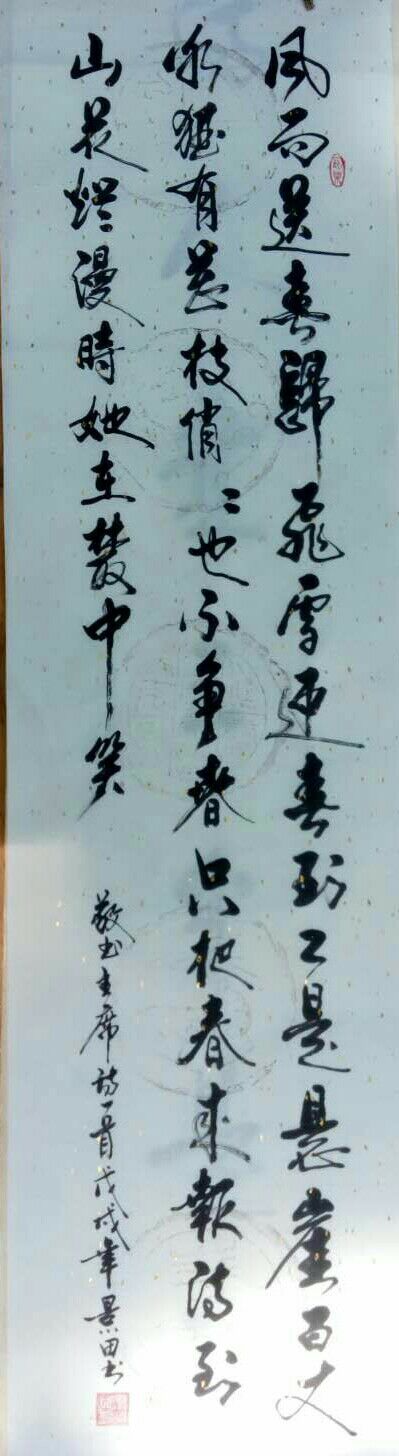 風雨送春歸飛雪迎春到已是懸崖百丈
冰猶有花枝俏〻也不争春只把春來報待到
山花爛漫時她在叢中笑
敬书主席诗一首戊戌年景田书